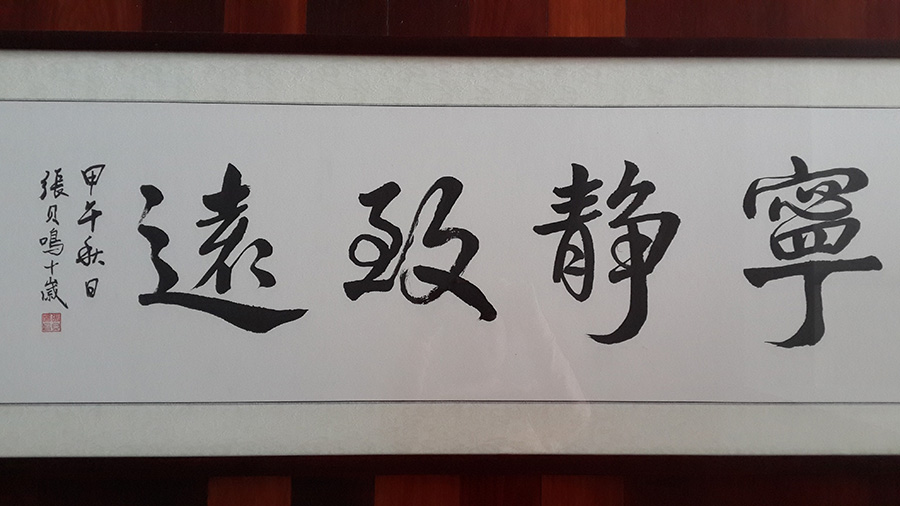 寧静致遠
甲午秋日
張貝鳴十歲